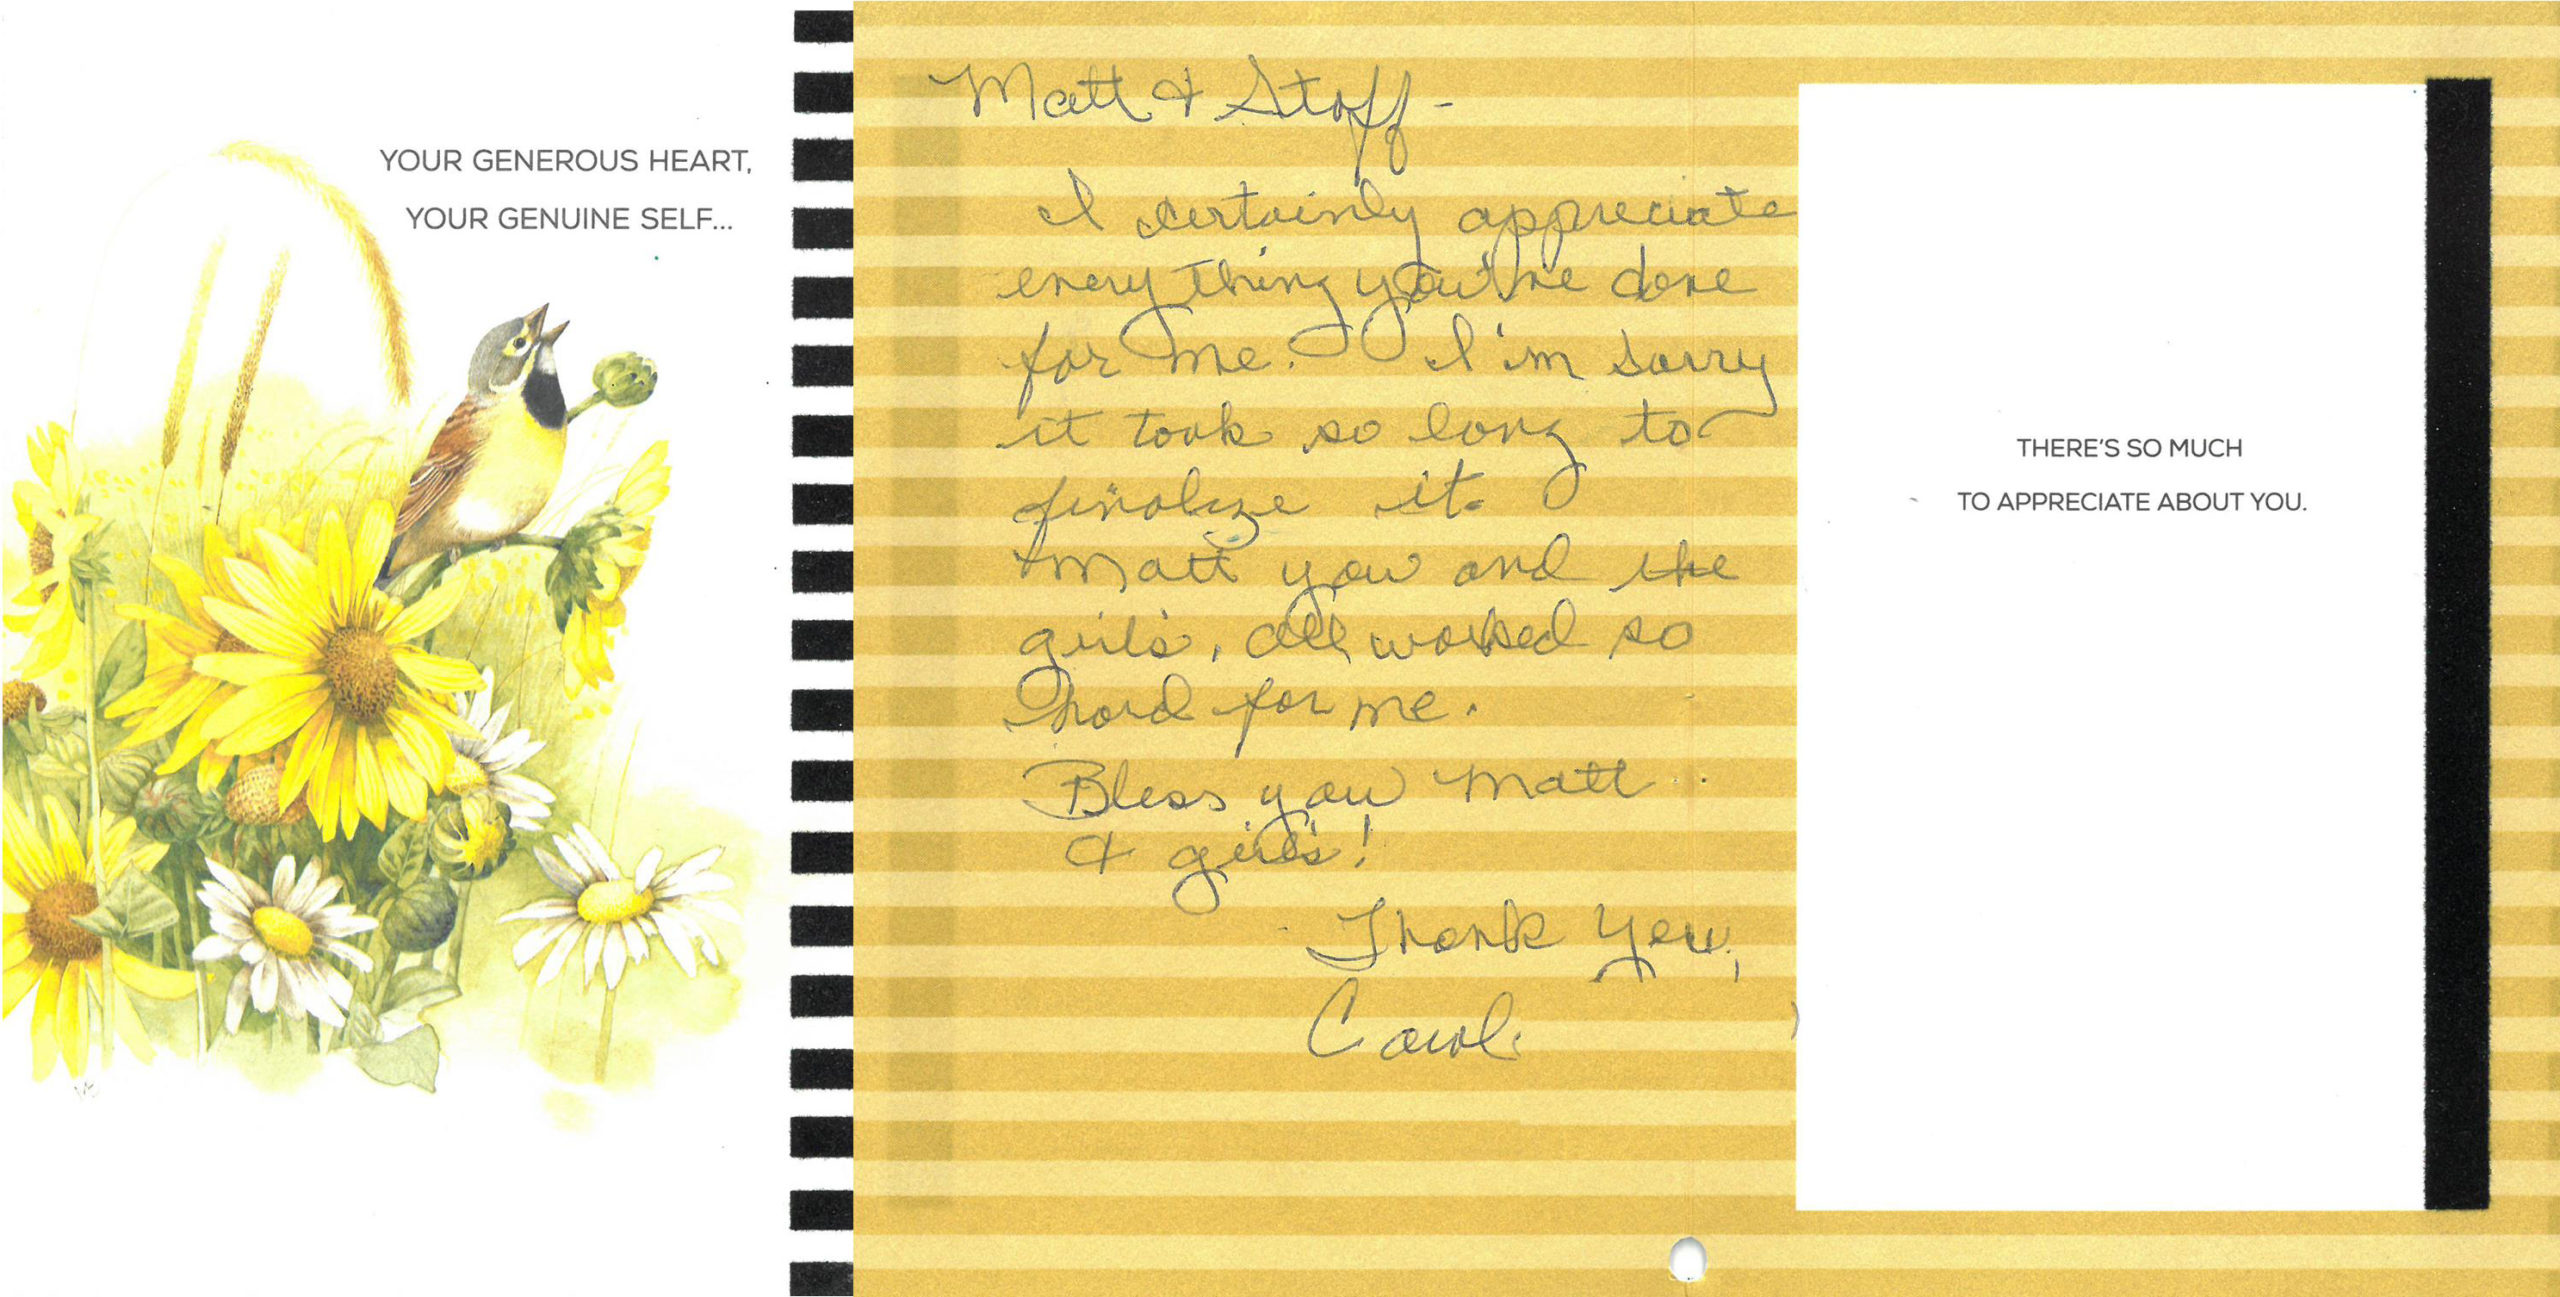 YOUR GENEROUS HEART,
YOUR GENUINE SELF...
Matt & Staff -
I certainly appreciate
every thing you've done
for me. I'm sorry
it took so long to
finalize it.
Matt you and the
girls, all worked so
hard for me.
Bless you Matt
& girls!
Thank You,
Carol.
THERE'S SO MUCH
TO APPRECIATE ABOUT YOU.